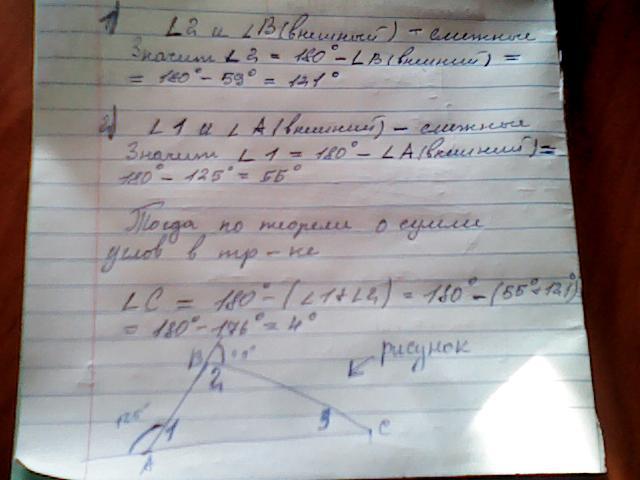 1) ∠2 и ∠B(внешний) – смежные
Значит ∠2 = 180° – ∠B(внешний) =
= 180° – 59° = 121°
2) ∠1 и ∠A(внешний) – смежные
Значит ∠1 = 180° – ∠A(внешний) =
180° – 125° = 55°
Тогда по теореме о сумме
углов в тр-ке
∠C = 180° – (∠1+∠2) = 180° – (55°+121°)
= 180° – 176° = 4°
рисунок
B
2
125°
1
3
C
A